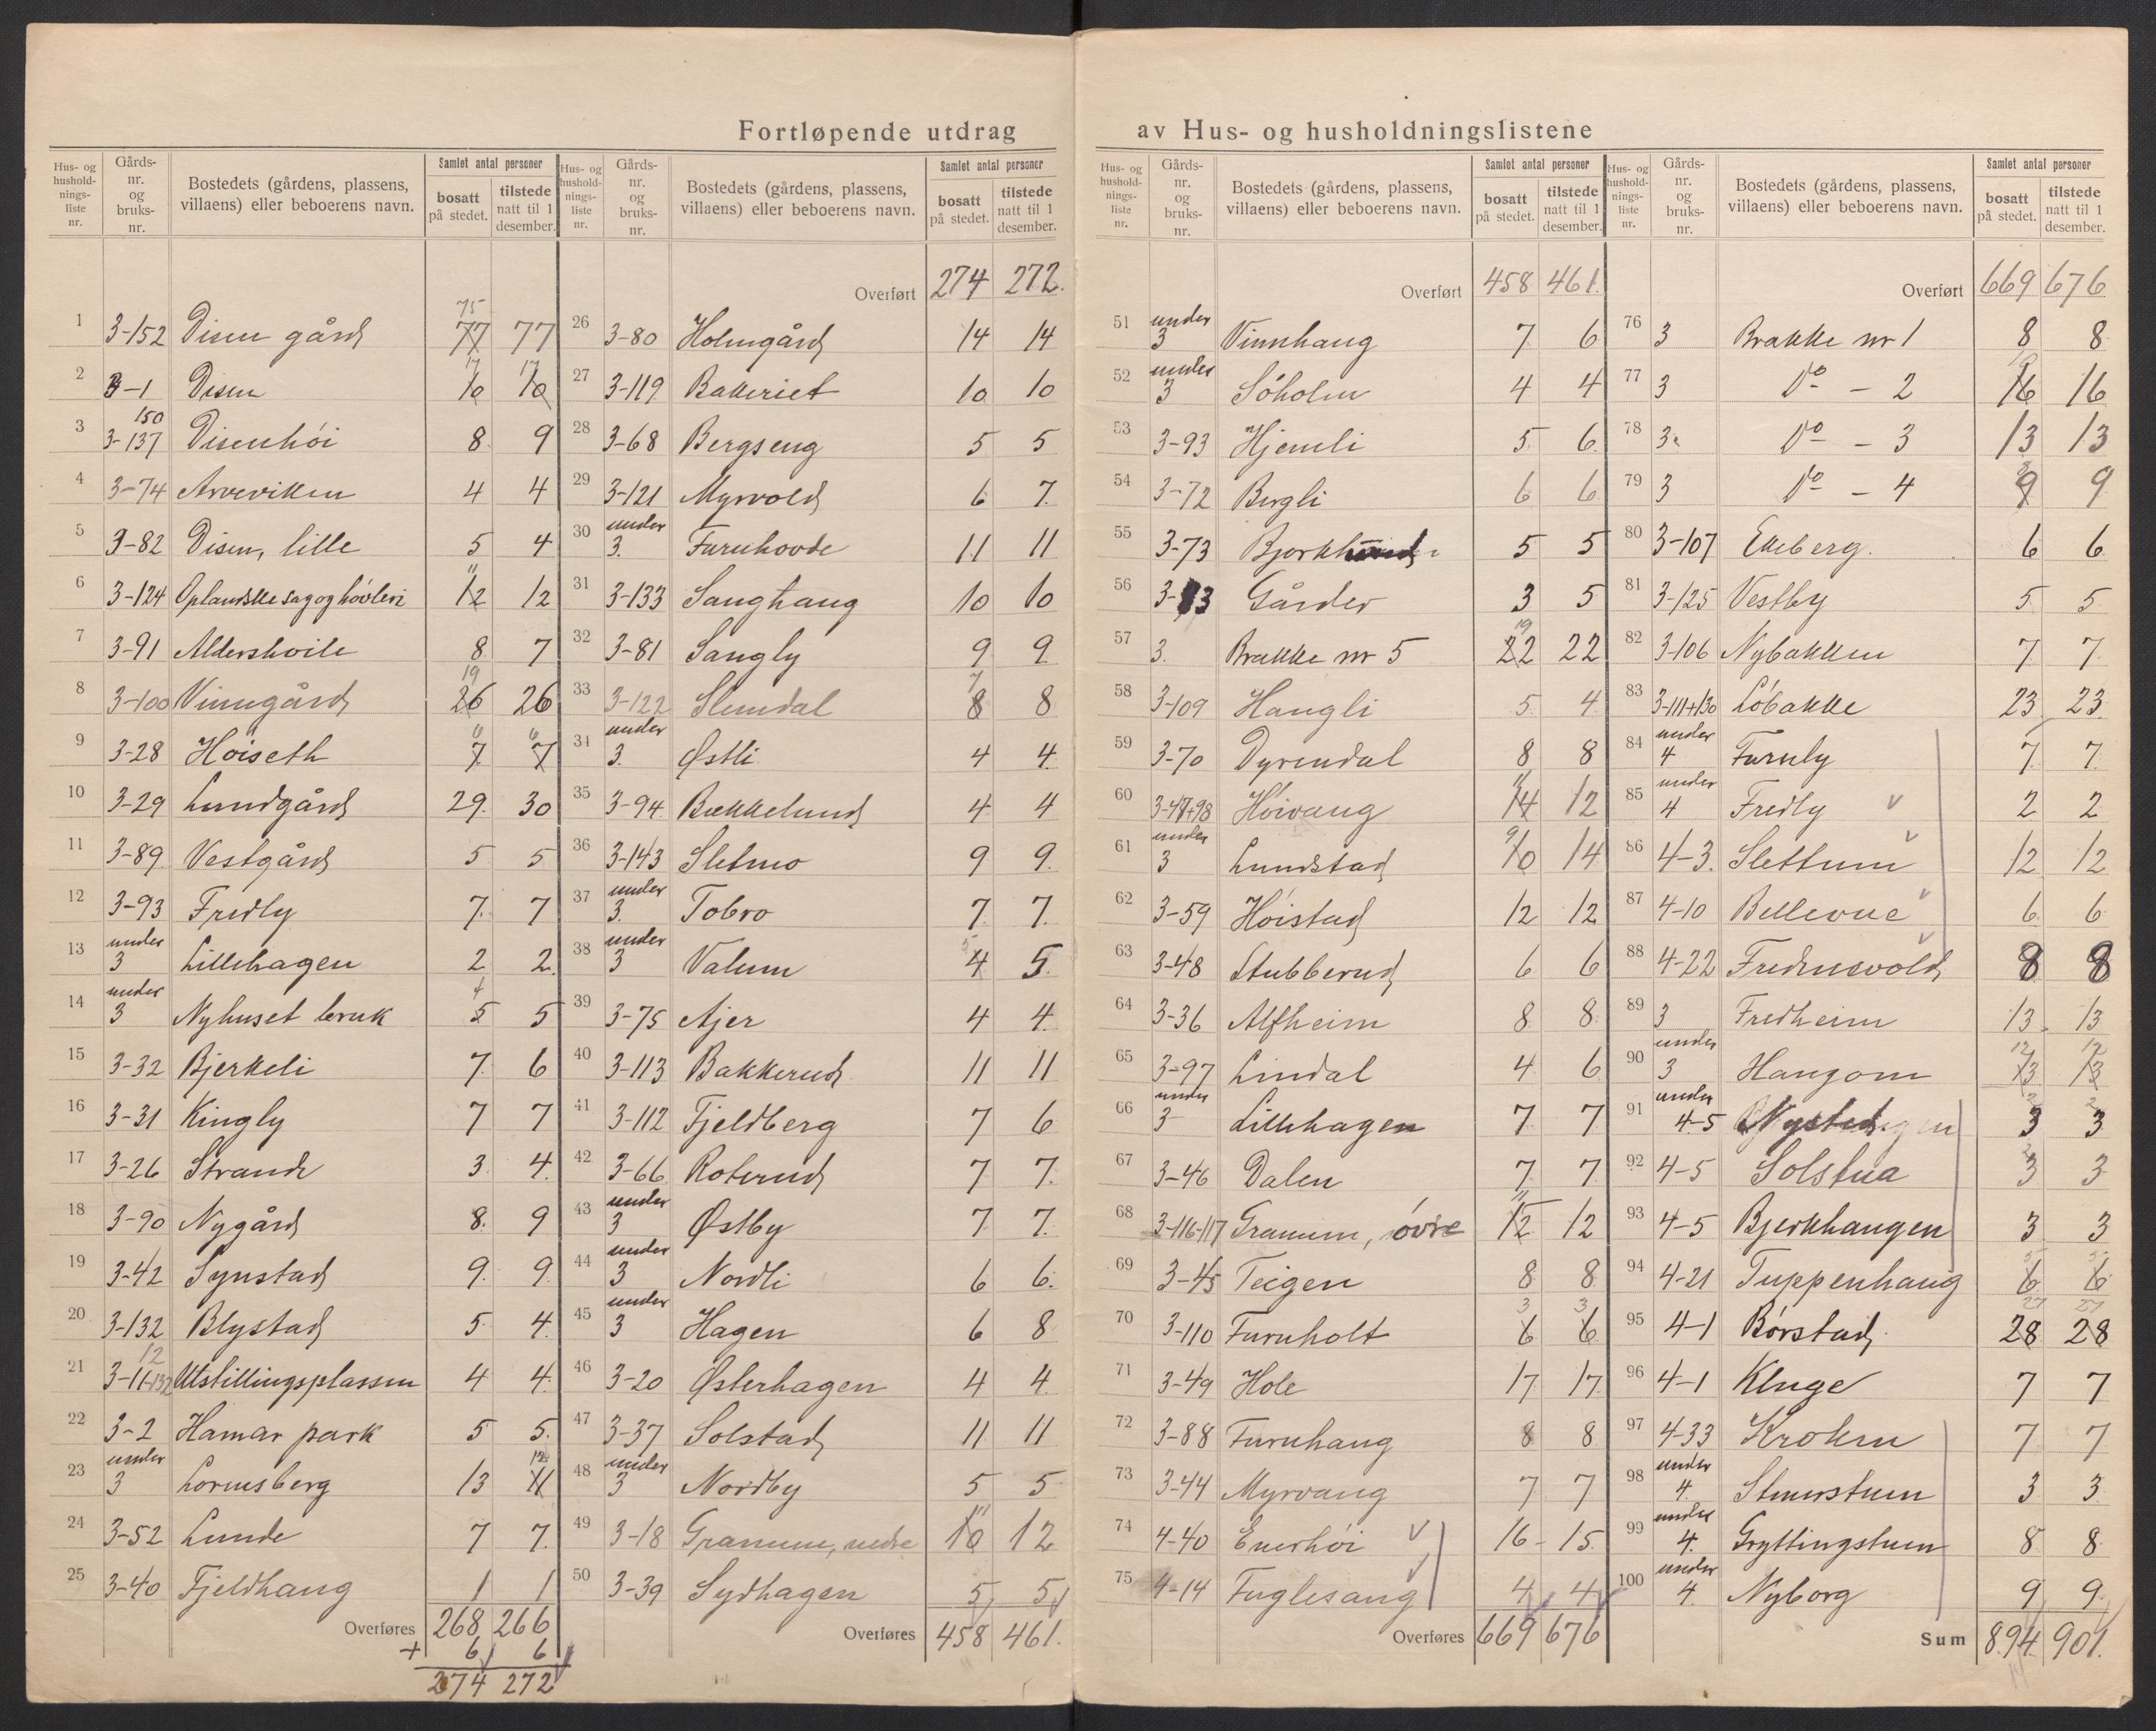 Fortløpende utdrag av Hus- og husholdningslistene
Hus- og hushold-nings-liste nr. Gårds-nr. og bruks-nr. Bostedets (gårdens, plassens, villaens) eller beboerens navn. Samlet antal personer bosatt på stedet. tilstede natt til 1 desember.
1 3-152 Disen gård 75 77 77
2 3-1 Disen 17 10 17 10
3 150 3-137 Disenhöi 8 9
4 3-74 Arveviken 4 4
5 3-82 Disen, lille 5 4
6 3-124 Oplandske sag og hövleri 11 12 12
7 3-91 Aldershvile 8 7
8 3-100 Vinngård 19 26 26
9 3-28 Höiseth 6 7 6 7
10 3-29 Lundgård 29 30
11 3-89 Vestgård 5 5
12 3-93 Fredly 7 7
13 under 3 Lillehagen 2 2
14 under 3 Nyhuset bruk 4 5 5
15 3-32 Bjerkeli 7 6
16 3-31 Kingly 7 7
17 3-26 Strand 3 4
18 3-90 Nygård 8 9
19 3-42 Synstad 9 9
20 3-132 Blystad 5 4
21 12 3-11-132 Utstillingsplassen 4 4
22 3-2 Hamar park 5 5
23 under 3 Lormsberg 13 12 11
24 3-52 Lunde 7 7
25 3-40 Fjeldhaug 1 1
Overføres 268 266
+ 6 6
274 272
Hus- og hushold-nings-liste nr. Gårds-nr. og bruks-nr. Bostedets (gårdens, plassens, villaens) eller beboerens navn. Samlet antal personer bosatt på stedet. tilstede natt til 1 desember.
Overført 274 272
26 3-80 Holmgård 14 14
27 3-119 Bakeriet 10 10
28 3-68 Bergseng 5 5
29 3-121 Myrvold 6 7
30 under 3 Furuhovde 11 11
31 3-133 Sanghaug 10 10
32 3-81 Sangly 9 9
33 3-122 Slemdal 7 8 8
34 under 3 Østli 4 4
35 3-94 Bækkelund 4 4
36 3-143 Sletmo 9 9
37 under 3 Tobro 7 7
38 under 3 Valum 5 4 5
39 3-75 Ajer 4 4
40 3-113 Bakkerud 11 11
41 3-112 Fjeldberg 7 6
42 3-66 Roterud 7 7
43 under 3 Østby 7 7
44 under 3 Nordli 6 6
45 under 3 Hagen 6 8
46 3-20 Østerhagen 4 4
47 3-37 Solstad 11 11
48 under 3 Nordby 5 5
49 3-18 Granum, nedre 11 10 12
50 3-39 Sydhagen 5 5
Overføres 458 461
Hus- og hushold-nings-liste nr. Gårds-nr. og bruks-nr. Bostedets (gårdens, plassens, villaens) eller beboerens navn. Samlet antal personer bosatt på stedet. tilstede natt til 1 desember.
Overført 458 461
51 under 3 Vinnhaug 7 6
52 under 3 Söholm 4 4
53 3-93 Hjemli 5 6
54 3-72 Bergli 6 6
55 3-73 5 5
56 Gårder 3 5
57 3 Brakke nr 5 19 22 22
58 3-109 Haugli 5 4
59 3-70 Dyrendal 8 8
60 3-47+98 Höivang 11 14 12
61 under 3 Lundstad 9 10 14
62 3-59 Höistad 12 12
63 3-48 Stubberud 6 6
64 3-36 Alfheim 8 8
65 3-97 Lindal 4 6
66 under 3 Lillehagen 7 7
67 3-46 Dalen 7 7
68 3-116-117 Granum, övre 11 12 12
69 3-45 Teigen 8 8
70 3-110 Furuholt 3 6 3 6
71 3-49 Hole 17 17
72 3-88 Furuhaug 8 8
73 3-44 Myrvang 7 7
74 4-40 Enerhöi 16 15
75 4-14 Fuglesang 4 4
Overføres 669 676
Hus- og hushold-nings-liste nr. Gårds-nr. og bruks-nr. Bostedets (gårdens, plassens, villaens) eller beboerens navn. Samlet antal personer bosatt på stedet. tilstede natt til 1 desember.
Overført 669 676
76 3 Brakke nr 1 8 8
77 3 Do - 2 16 16
78 3 Do - 3 13 13
79 3 Do - 4 9 9
80 3-107 Ekeberg 6 6
81 3-125 Vestby 5 5
82 3-106 Nybakken 7 7
83 3-111+130 Löbakke 23 23
84 under 4 Furuly 7 7
85 under 4 Fredly 2 2
86 4-3 Slettum 12 12
87 4-10 Bellevue 6 6
88 4-22 Fredensvold 8 8
89 3 Fredheim 13 13
90 under 3 Haugom 12 13 12 13
91 under 4-5 2 3 2 3
92 4-5 Solstua 2 3 3
93 4-5 Bjerkhaugen 3 3
94 4-21 Tuppenhaug 5 6 5 6
95 4-1 Börstad 27 28 27 28
96 4-1 Kluge 7 7
97 4-33 Kroken 7 7
98 under 4 Stenerstuen 3 3
99 under 4 Gryttingstuen 8 8
100 under 4 Nyborg 9 9
Sum 894 901